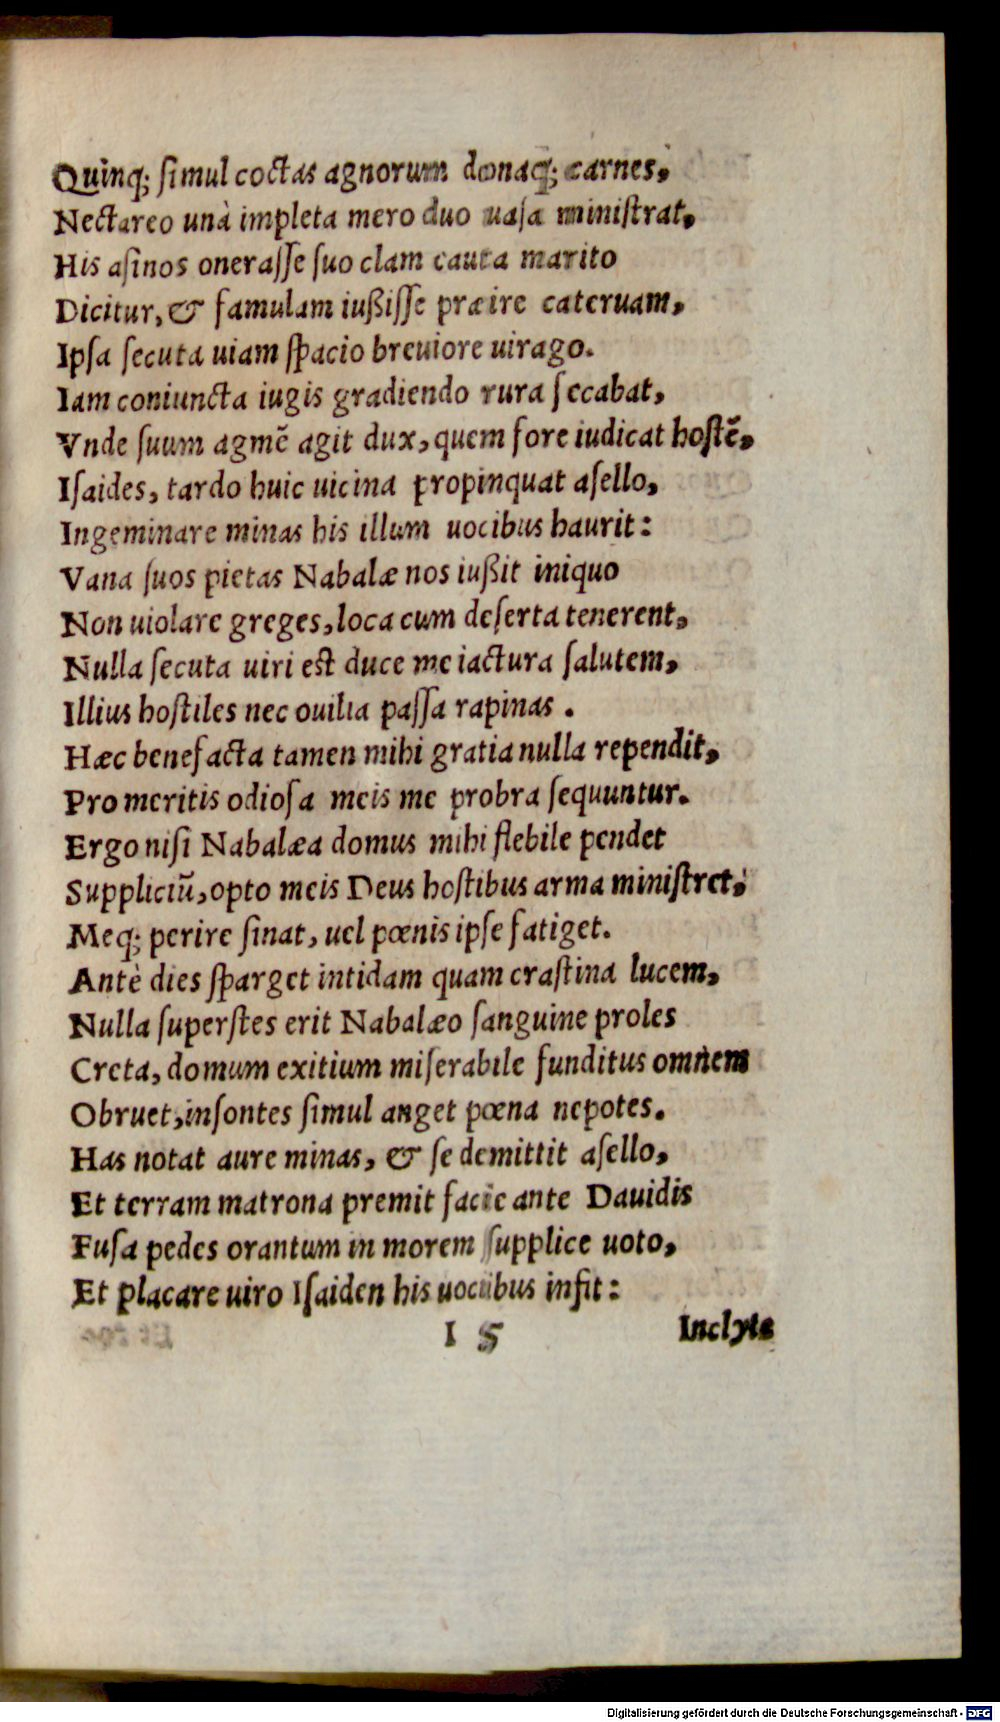 Quinq; ſimul coctas agnorum donaq; carnes,
Nectareo unà impleta mero duo uaſa miniſtrat,
His aſinos oneraſſe ſuo clam cauta marito
Dicitur, & famulam iußiſſe præire cateruam,
Ipſa ſecuta uiam ſpacio breuiore uirago.
Iam coniuncta iugis gradiendo rura ſecabat,
Vnde ſuum agmẽ agit dux, quem fore iudicat hoſtẽ,
Iſaides, tardo huic uicina propinquat aſello,
Ingeminare minas his illum uocibus haurit:
Vana ſuos pietas Nabalæ nos iußit iniquo
Non uiolare greges, loca cum deſerta tenerent,
Nulla ſecuta uiri est duce me iactura ſalutem,
Illius hoſtiles nec ouilia paſſa rapinas.
Hæc benefacta tamen mihi gratia nulla rependit,
Pro meritis odioſa meis me probra ſequuntur.
Ergo niſi Nabalæa domus mihi flebile pendet
Suppliciũ, opto meis Deus hoſtibus arma miniſtret,
Meq; perire ſinat, uel pœnis ipſe fatiget.
Antè dies ſparget intidam quam craſtina lucem,
Nulla ſuperſtes erit Nabalæo ſanguine proles
Creta, domum exitium miſerabile funditus omnem
Obruet, inſontes ſimul anget pœna nepotes.
Has notat aure minas, & ſe demittit aſello,
Et terram matrona premit facie ante Dauidis
Fuſa pedes orantum in morem ſupplice uoto,
Et placare uiro Iſaiden his uocibus infit:
I 5 Inclyte
Digitalisierung gefördert durch die Deutsche Forschungsgemeinschaft - DFG